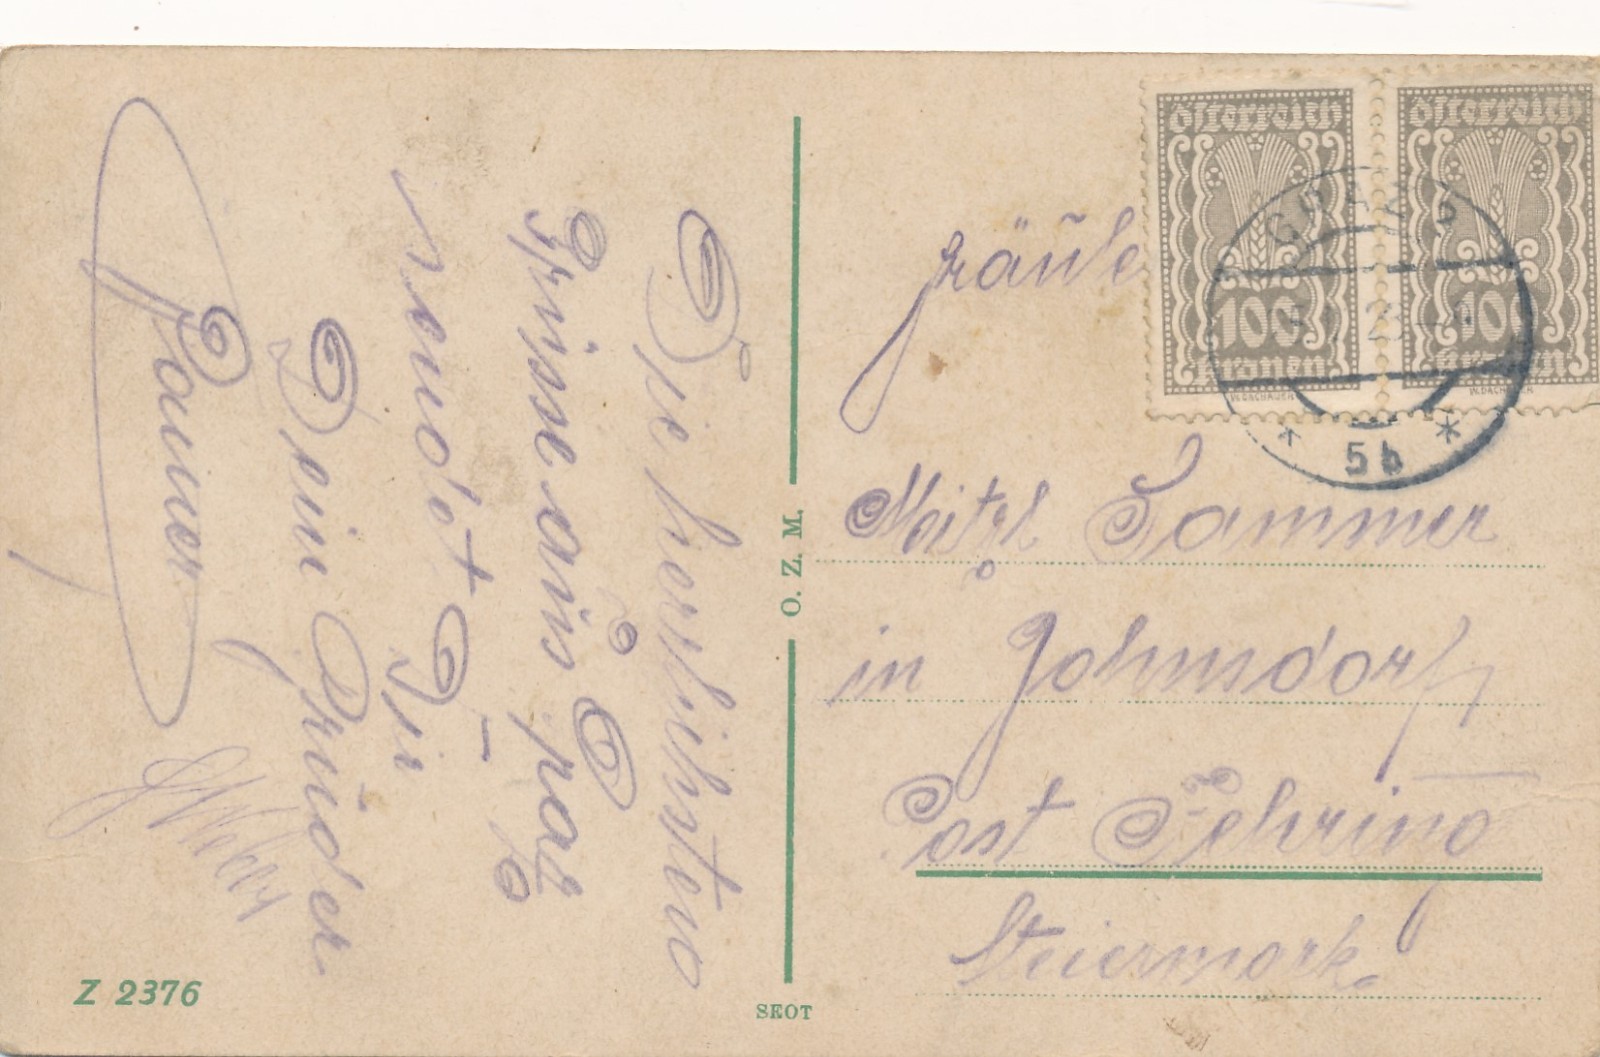 Die herzlichsten
Grüsse aus Graz
sendet Dir
Dein Bruder
Österreich
100
Kronen
W. DACHAUER
Österreich
100
Kronen
W. DACHAUER
GRAZ
23
5b
Fräule
Mitzl Sammer
in Johnsdorf
Post Fehring
Steiermark.
O. Z. M.
SEOT
Z 2376